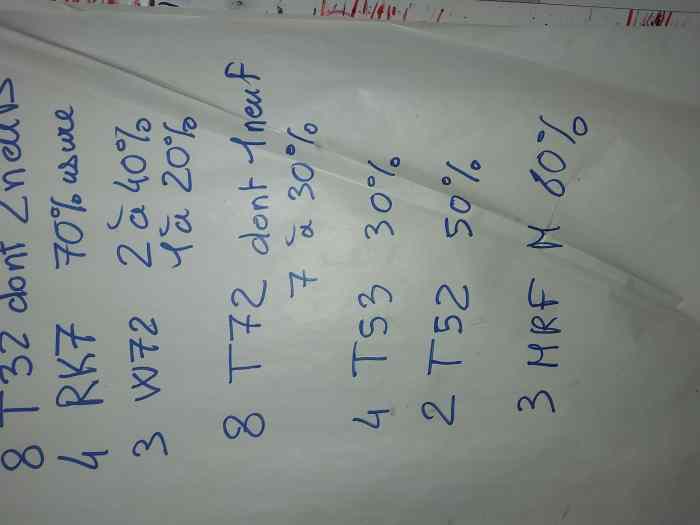 8 T32 dont 2 neufs
4 RK7 70% usure
3 W72 2 à 40%
1 à 20%
8 T72 dont 1 neuf
7 à 30%
4 T53 30%
2 T52 50%
3 MRF M 80%